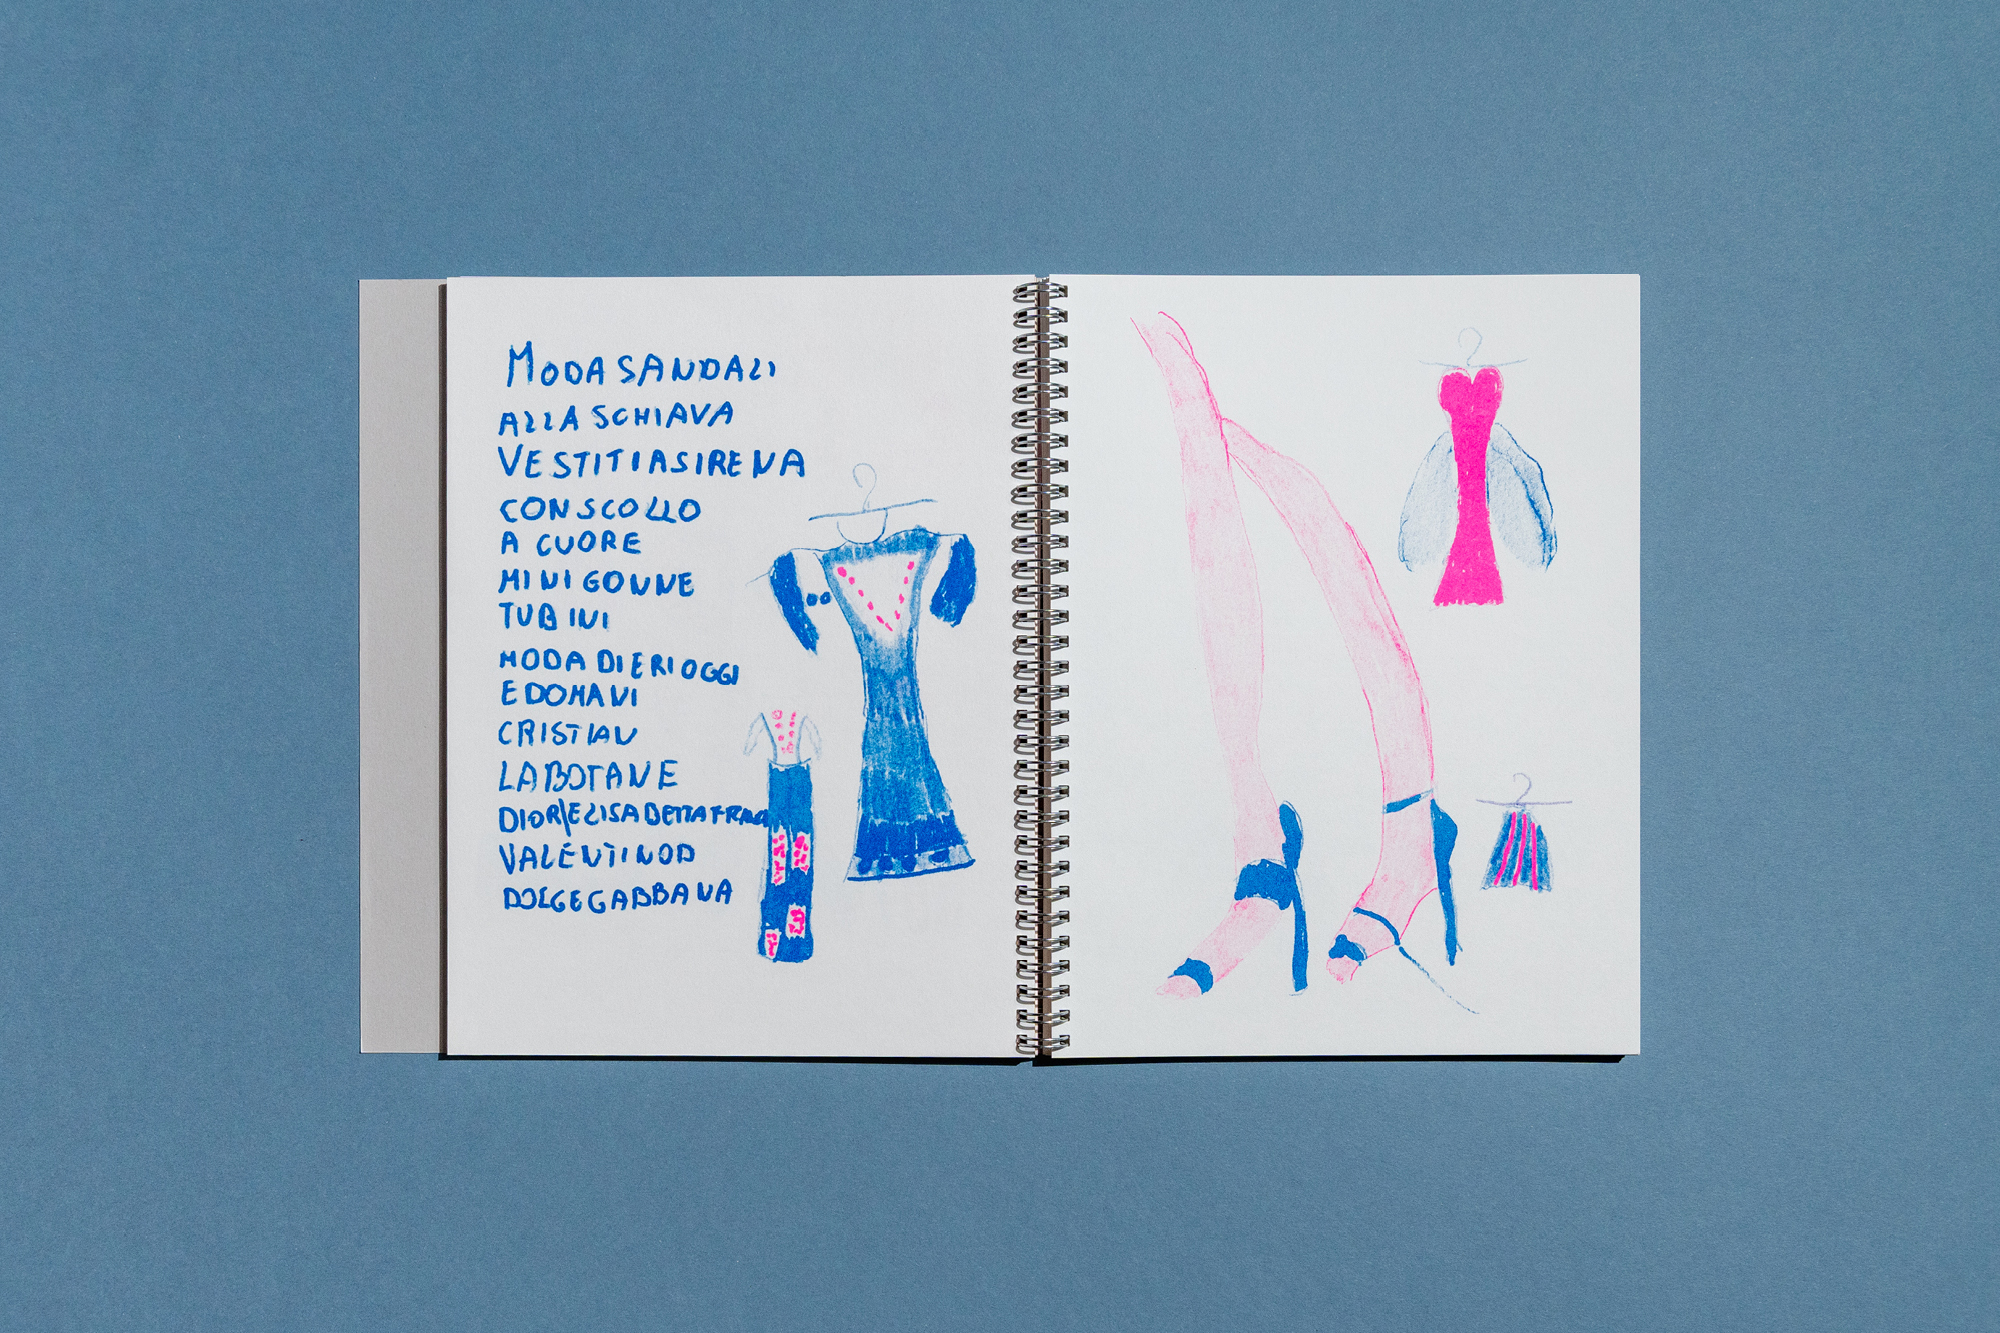 MODA SANDALI
ALLA SCHIAVA
VESTITI A SIRENA
CON SCOLLO
A CUORE
MINI GONNE
TUBINI
MODA DI ERI OGGI
E DOMANI
CRISTIAN
LABOTANE
DIOR ELISABETTA FRANC
VALENTINO D
DOLGEGABBANA